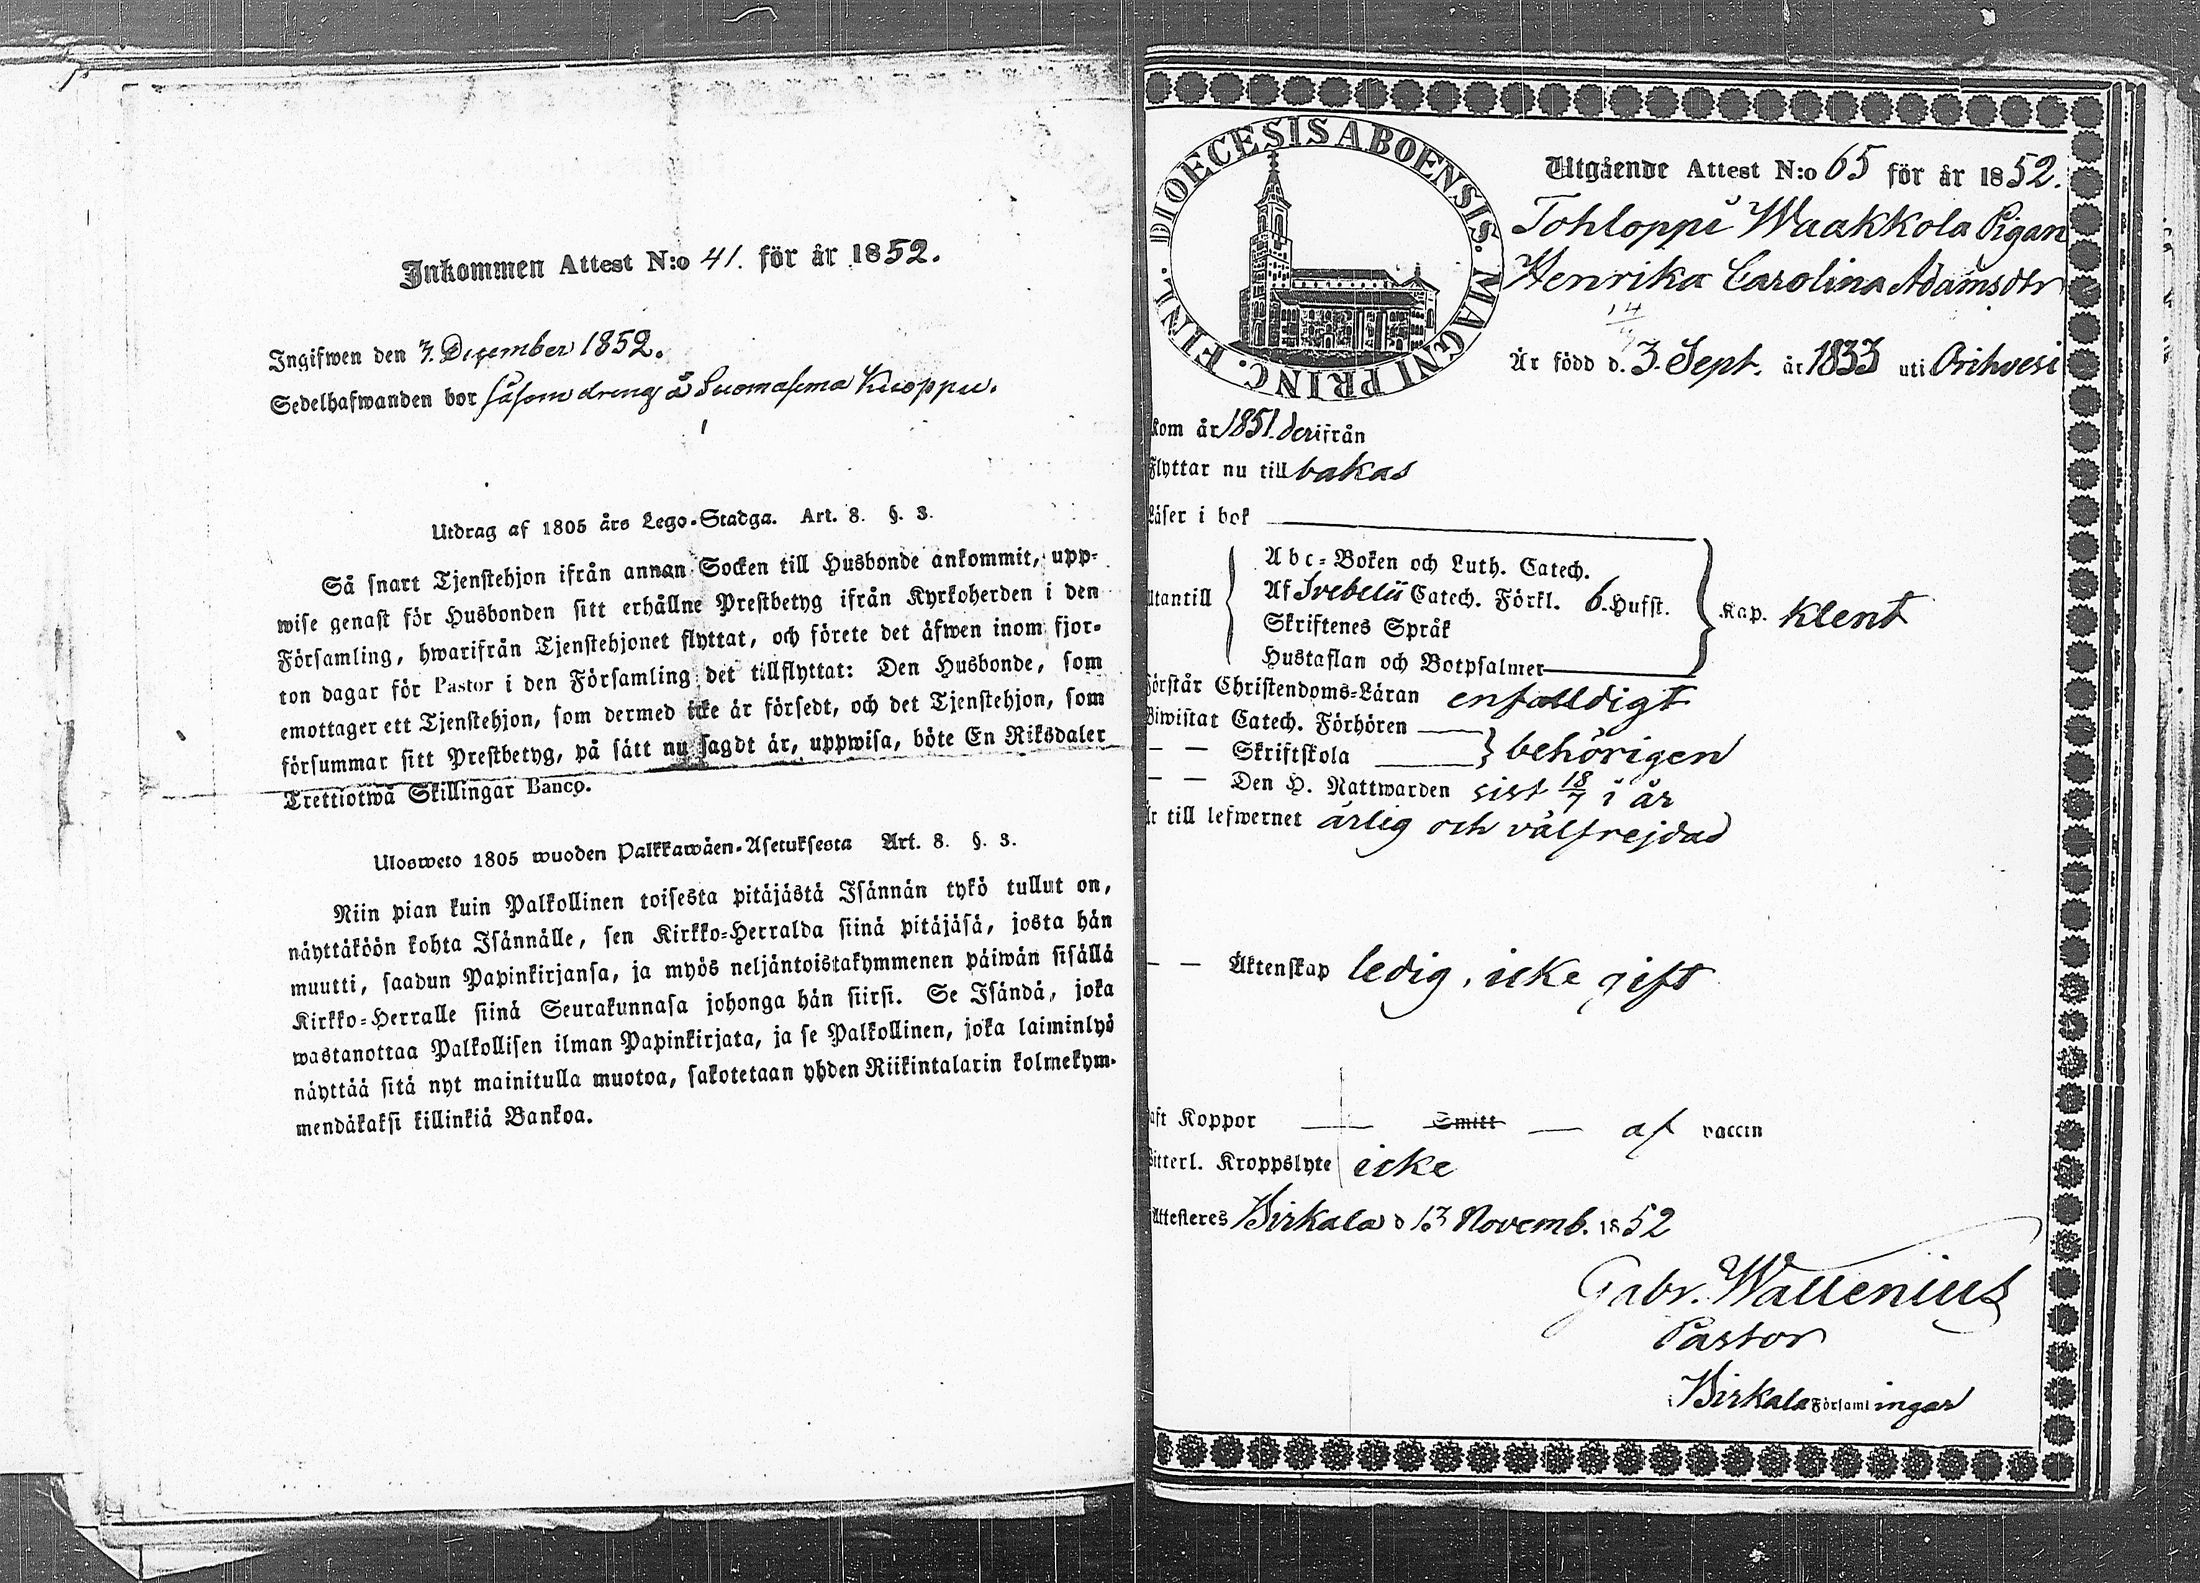 Inkommen Attest N:o 41. för år 1852.
Ingifwen den 7. December 1852.
Sedelhafwanden bor såsom dreng å Suomasema Kuoppu.
Utdrag af 1805 års Lego-Stadga. Art. 8. §. 3.
Så snart Tjenstehjon ifrån annan Socken till Husbonde ankommit, upp-
wise genast för Husbonden sitt erhållne Prestbetyg ifrån Kyrkoherden i den
Församling, hwarifrån Tjenstehjonet flyttat, och förete det äfwen inom fjor-
ton dagar för Pastor i den Församling det tillflyttat: Den Husbonde, som
emottager ett Tjenstehjon, som dermed icke är försedt, och det Tjenstehjon, som
försummar sitt Prestbetyg, på sätt nu sagdt är, uppwisa, böte En Riksdaler
Trettiotwå Skillingar Banco.
Ulosweto 1805 wuoden Palkkawäen-Asetuksesta Art. 8. §. 3.
Niin pian kuin Palkollinen toisesta pitäjästä Isännän tykö tullut on,
näyttäköön kohta Isännälle, sen Kirkko-Herralda siinä pitäjäsä, josta hän
muutti, saadun Papinkirjansa, ja myös neljäntoistakymmenen päiwän sisällä
Kirkko-Herralle siinä Seurakunnasa johonga hän siirsi. Se Isändä, joka
wastanottaa Palkollisen ilman Papinkirjata, ja se Palkollinen, joka laiminlyö
näyttää sitä nyt mainitulla muotoa, sakotetaan yhden Riikintalarin kolmekym-
mendäkaksi killinkiä Bankoa.
DIOECESIS ABOENSIS. MAGNI PRINC. FINL.
Utgående Attest N:o 65 för år 1852.
Tohloppi Waakkola Pigan
Henrika Carolina Adamsdtr
Är född d. 3. Sept. år 1833 uti Orihvesi
kom år 1851. derifrån
Flyttar nu till bakas
Läser i bok
Abc-Boken och Luth. Catech.
Utantill Af Svebelii Catech. Förkl. 6. Hufst. Kap. klent
Skriftenes Språk
Hustaflan och Botpsalmer
Förstår Christendoms-Läran enfalldigt
Biwistat Catech. Förhören
— — Skriftskola behörigen
— — Den H. Nattwarden sist 18/7 i år
Är till lefwernet ärlig och välfrejdad
— — Äktenskap ledig, icke gift
haft Koppor — Smitt — af vaccin
Witterl. Kroppslyte icke
Attesteres Birkala d 13 Novemb. 1852
Gabr. Wallenius
Pastor
i Birkala Församlingar